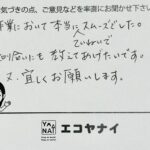 気づきの点、ご意見などを率直にお聞かせ下さ
業において本当にスムーズでした。
ていねいで
知り合いにも教えてあげたいです。
又、宜しくお願いします。
YANAI
エコヤナイ